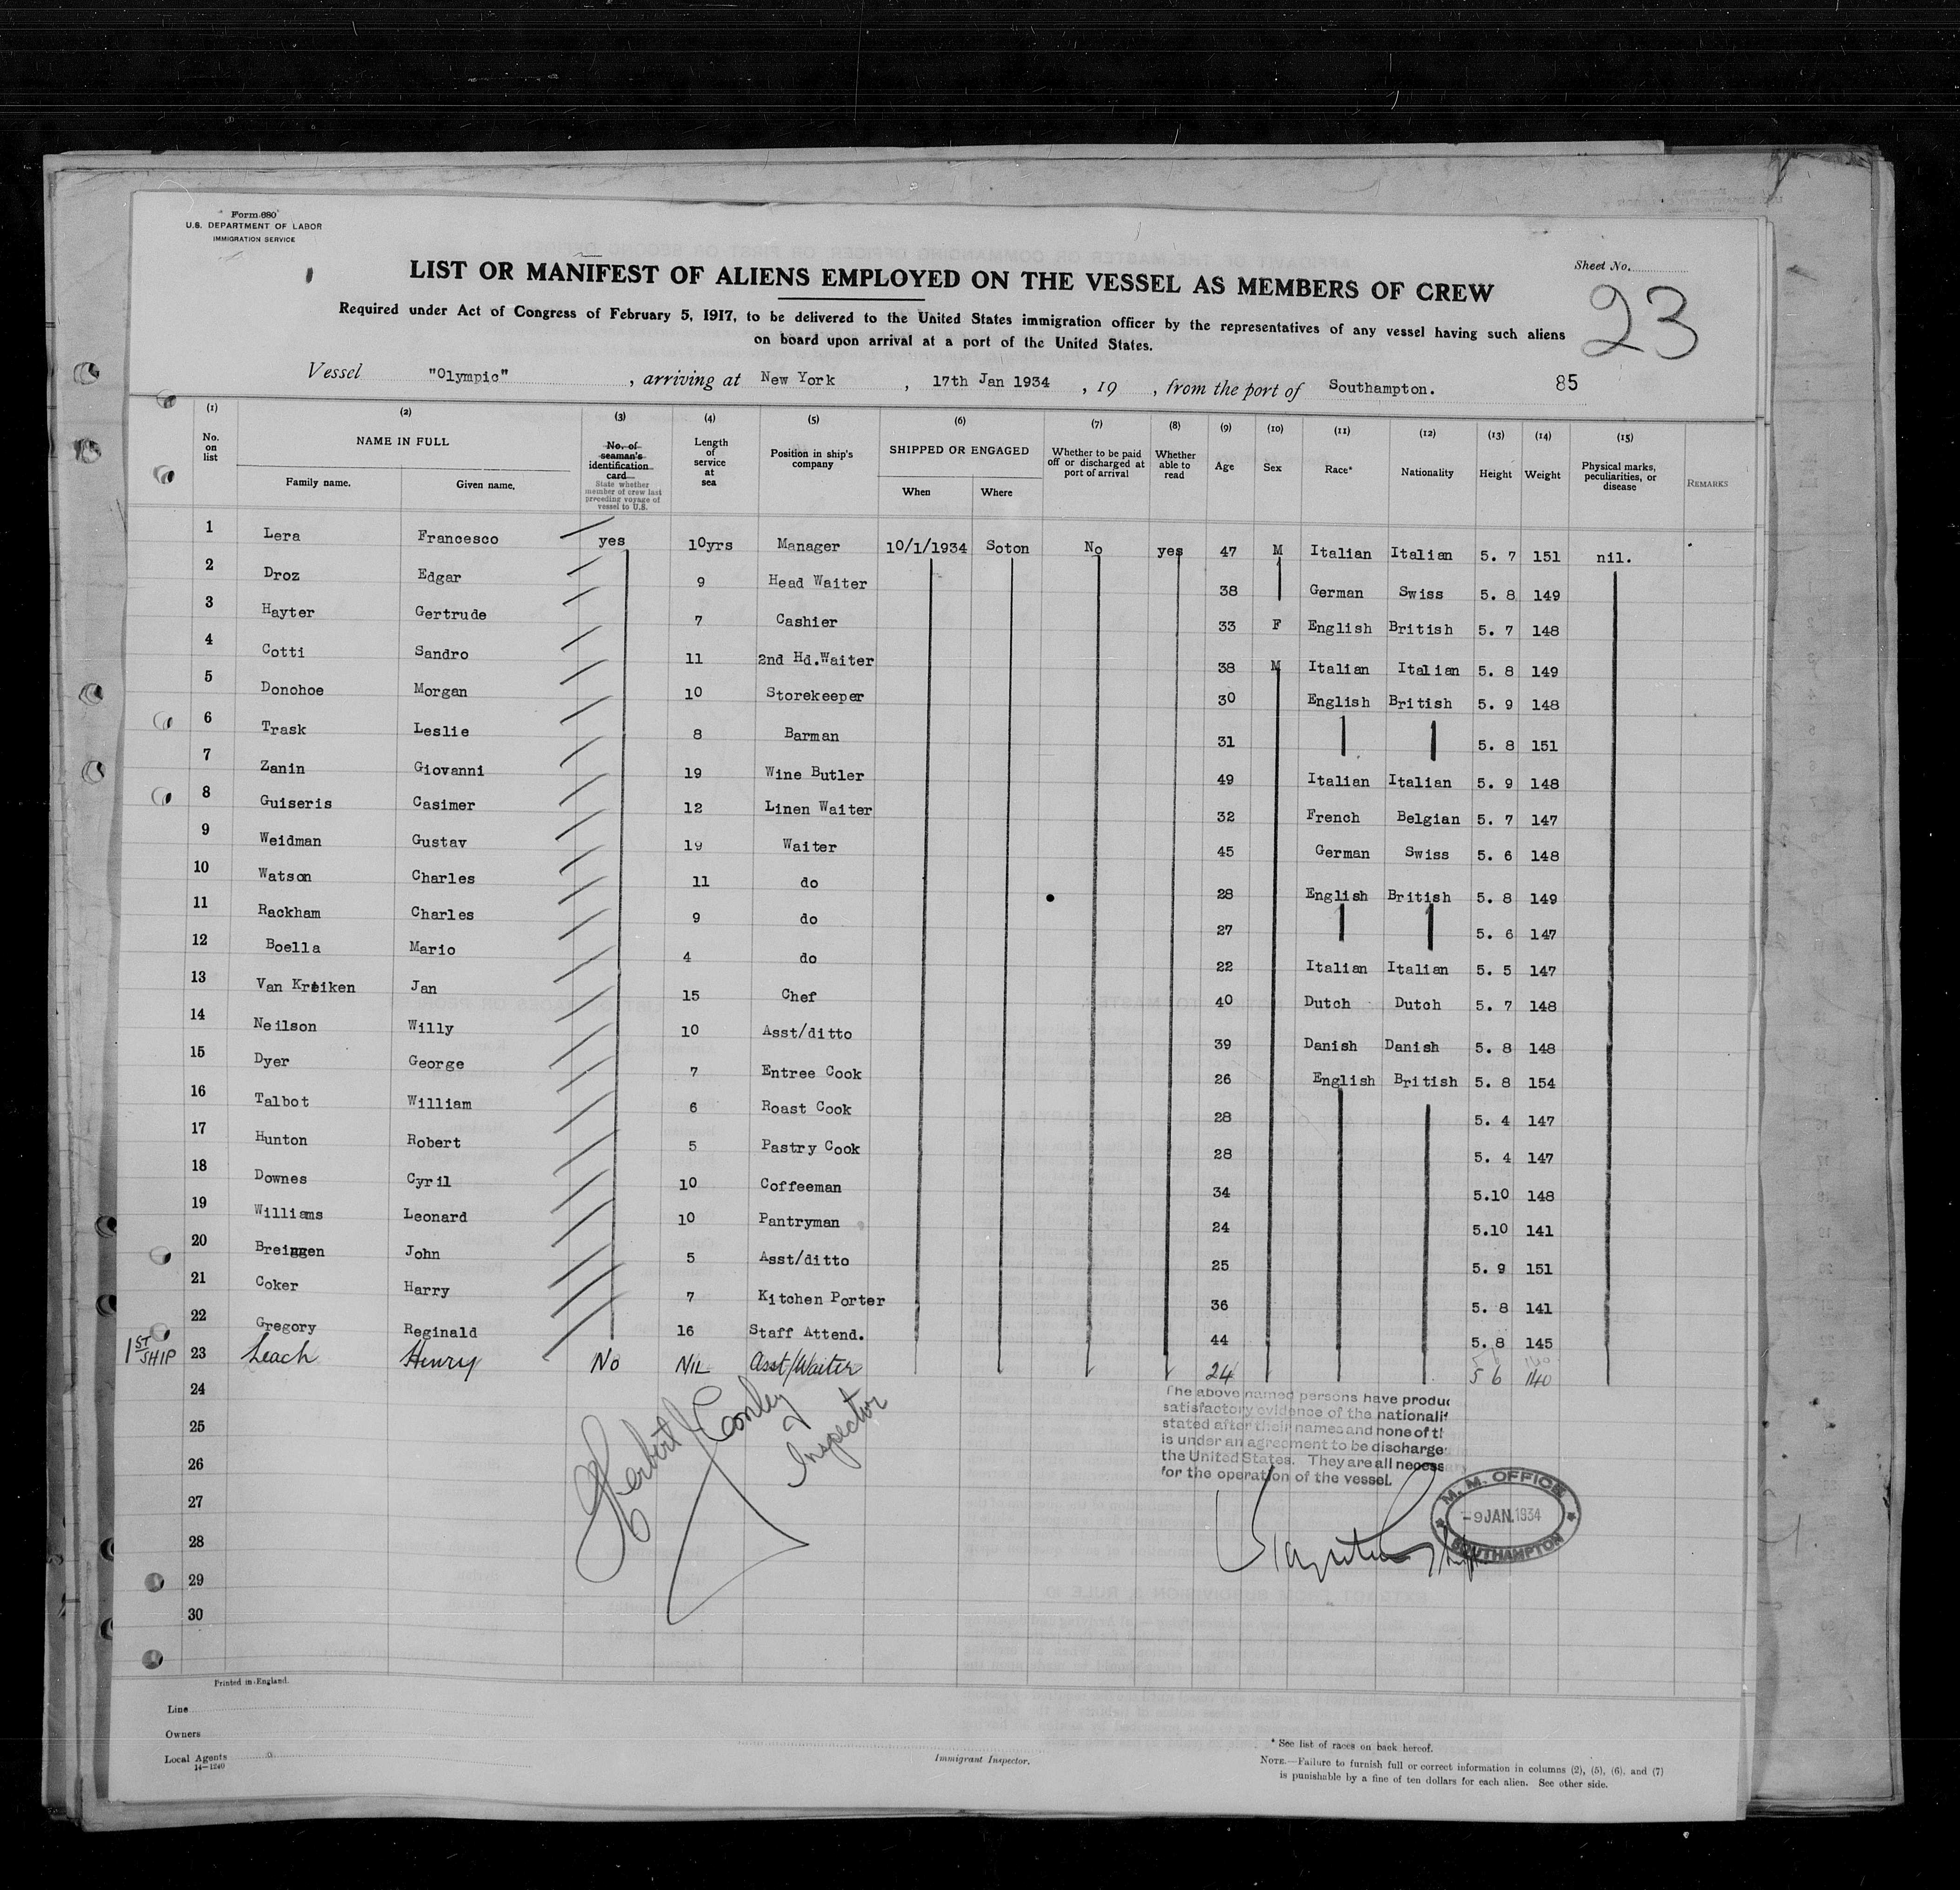 Form 680
U.S. DEPARTMENT OF LABOR
IMMIGRATION SERVICE
LIST OR MANIFEST OF ALIENS EMPLOYED ON THE VESSEL AS MEMBERS OF CREW
Sheet No.
23
Required under Act of Congress of February 5, 1917, to be delivered to the United States immigration officer by the representatives of any vessel having such aliens
on board upon arrival at a port of the United States.
Vessel "Olympic", arriving at New York, 17th Jan 1934, 19, from the port of Southampton. 85
(1) (2) (3) (4) (5) (6) (7) (8) (9) (10) (11) (12) (13) (14) (15)
No. on list NAME IN FULL Family name. Given name. No. of seaman's identification card State whether member of crew last preceding voyage of vessel to U.S. Length of service at sea Position in ship's company SHIPPED OR ENGAGED When Where Whether to be paid off or discharged at port of arrival Whether able to read Age Sex Race* Nationality Height Weight Physical marks, peculiarities, or disease REMARKS
1 Lera Francesco yes 10yrs Manager 10/1/1934 Soton No yes 47 M Italian Italian 5. 7 151 nil.
2 Droz Edgar 9 Head Waiter 38 German Swiss 5. 8 149
3 Hayter Gertrude 7 Cashier 33 F English British 5. 7 148
4 Cotti Sandro 11 2nd Hd.Waiter 38 M Italian Italian 5. 8 149
5 Donohoe Morgan 10 Storekeeper 30 English British 5. 9 148
6 Trask Leslie 8 Barman 31 5. 8 151
7 Zanin Giovanni 19 Wine Butler 49 Italian Italian 5. 9 148
8 Guiseris Casimer 12 Linen Waiter 32 French Belgian 5. 7 147
9 Weidman Gustav 19 Waiter 45 German Swiss 5. 6 148
10 Watson Charles 11 do 28 English British 5. 8 149
11 Rackham Charles 9 do 27 5. 6 147
12 Boella Mario 4 do 22 Italian Italian 5. 5 147
13 Van Kreiken Jan 15 Chef 40 Dutch Dutch 5. 7 148
14 Neilson Willy 10 Asst/ditto 39 Danish Danish 5. 8 148
15 Dyer George 7 Entree Cook 26 English British 5. 8 154
16 Talbot William 6 Roast Cook 28 5. 4 147
17 Hunton Robert 5 Pastry Cook 28 5. 4 147
18 Downes Cyril 10 Coffeeman 34 5.10 148
19 Williams Leonard 10 Pantryman 24 5.10 141
20 John 5 Asst/ditto 25 5. 9 151
21 Coker Harry 7 Kitchen Porter 36 5. 8 141
22 Gregory Reginald 16 Staff Attend. 44 5. 8 145
1ST SHIP 23 Leach Henry No NIL Asst/Waiter 24 5 6 140
24
25
26
27
28
29
30
Herbert J Conley
Inspector
The above named persons have produc
satisfactory evidence of the nationali
stated after their names and none of th
is under an agreement to be discharge
the United States. They are all necess
for the operation of the vessel.
M. M. OFFICE
-9 JAN. 1934
SOUTHAMPTON
Printed in England.
Line
Owners
Local Agents
14-1240
Immigrant Inspector.
* See list of races on back hereof.
NOTE.—Failure to furnish full or correct information in columns (2), (5), (6), and (7)
is punishable by a fine of ten dollars for each alien. See other side.